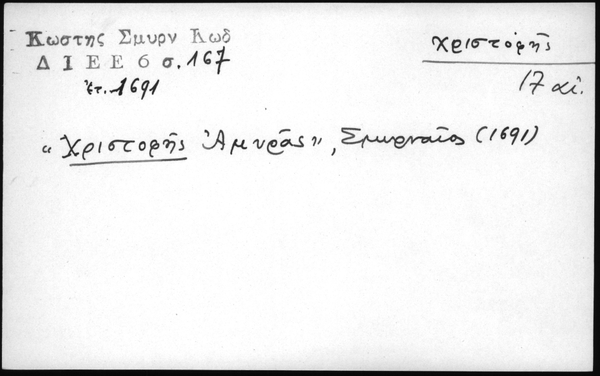 Κωστης Σμυρν Κωδ
Δ Ι Ε Ε 6 σ. 167
ἔτ. 1691
Χριστόφῆς
17 αἰ.
"Χριστοφῆς Ἀμυρᾶς", Σμυρναῖος (1691)